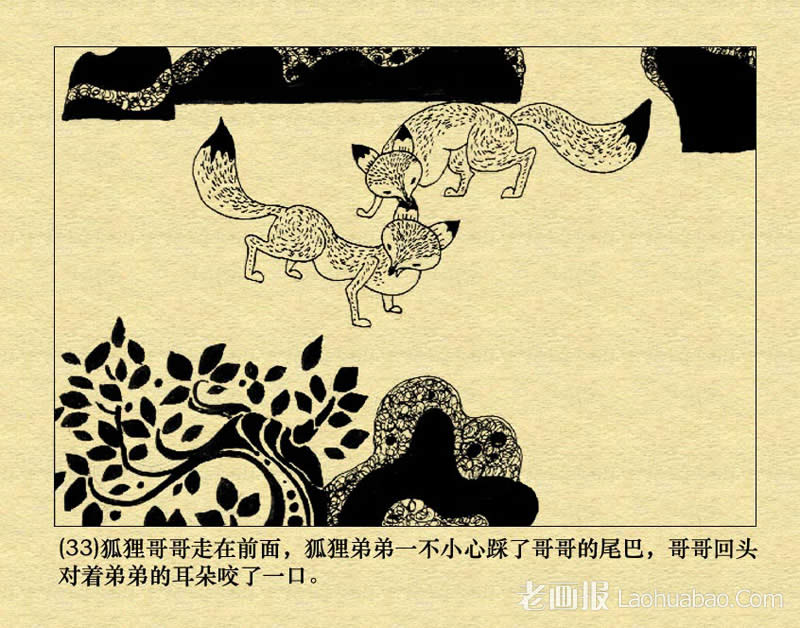 (33)狐狸哥哥走在前面，狐狸弟弟一不小心踩了哥哥的尾巴，哥哥回头
对着弟弟的耳朵咬了一口。
老画报 Laohuabao.Com